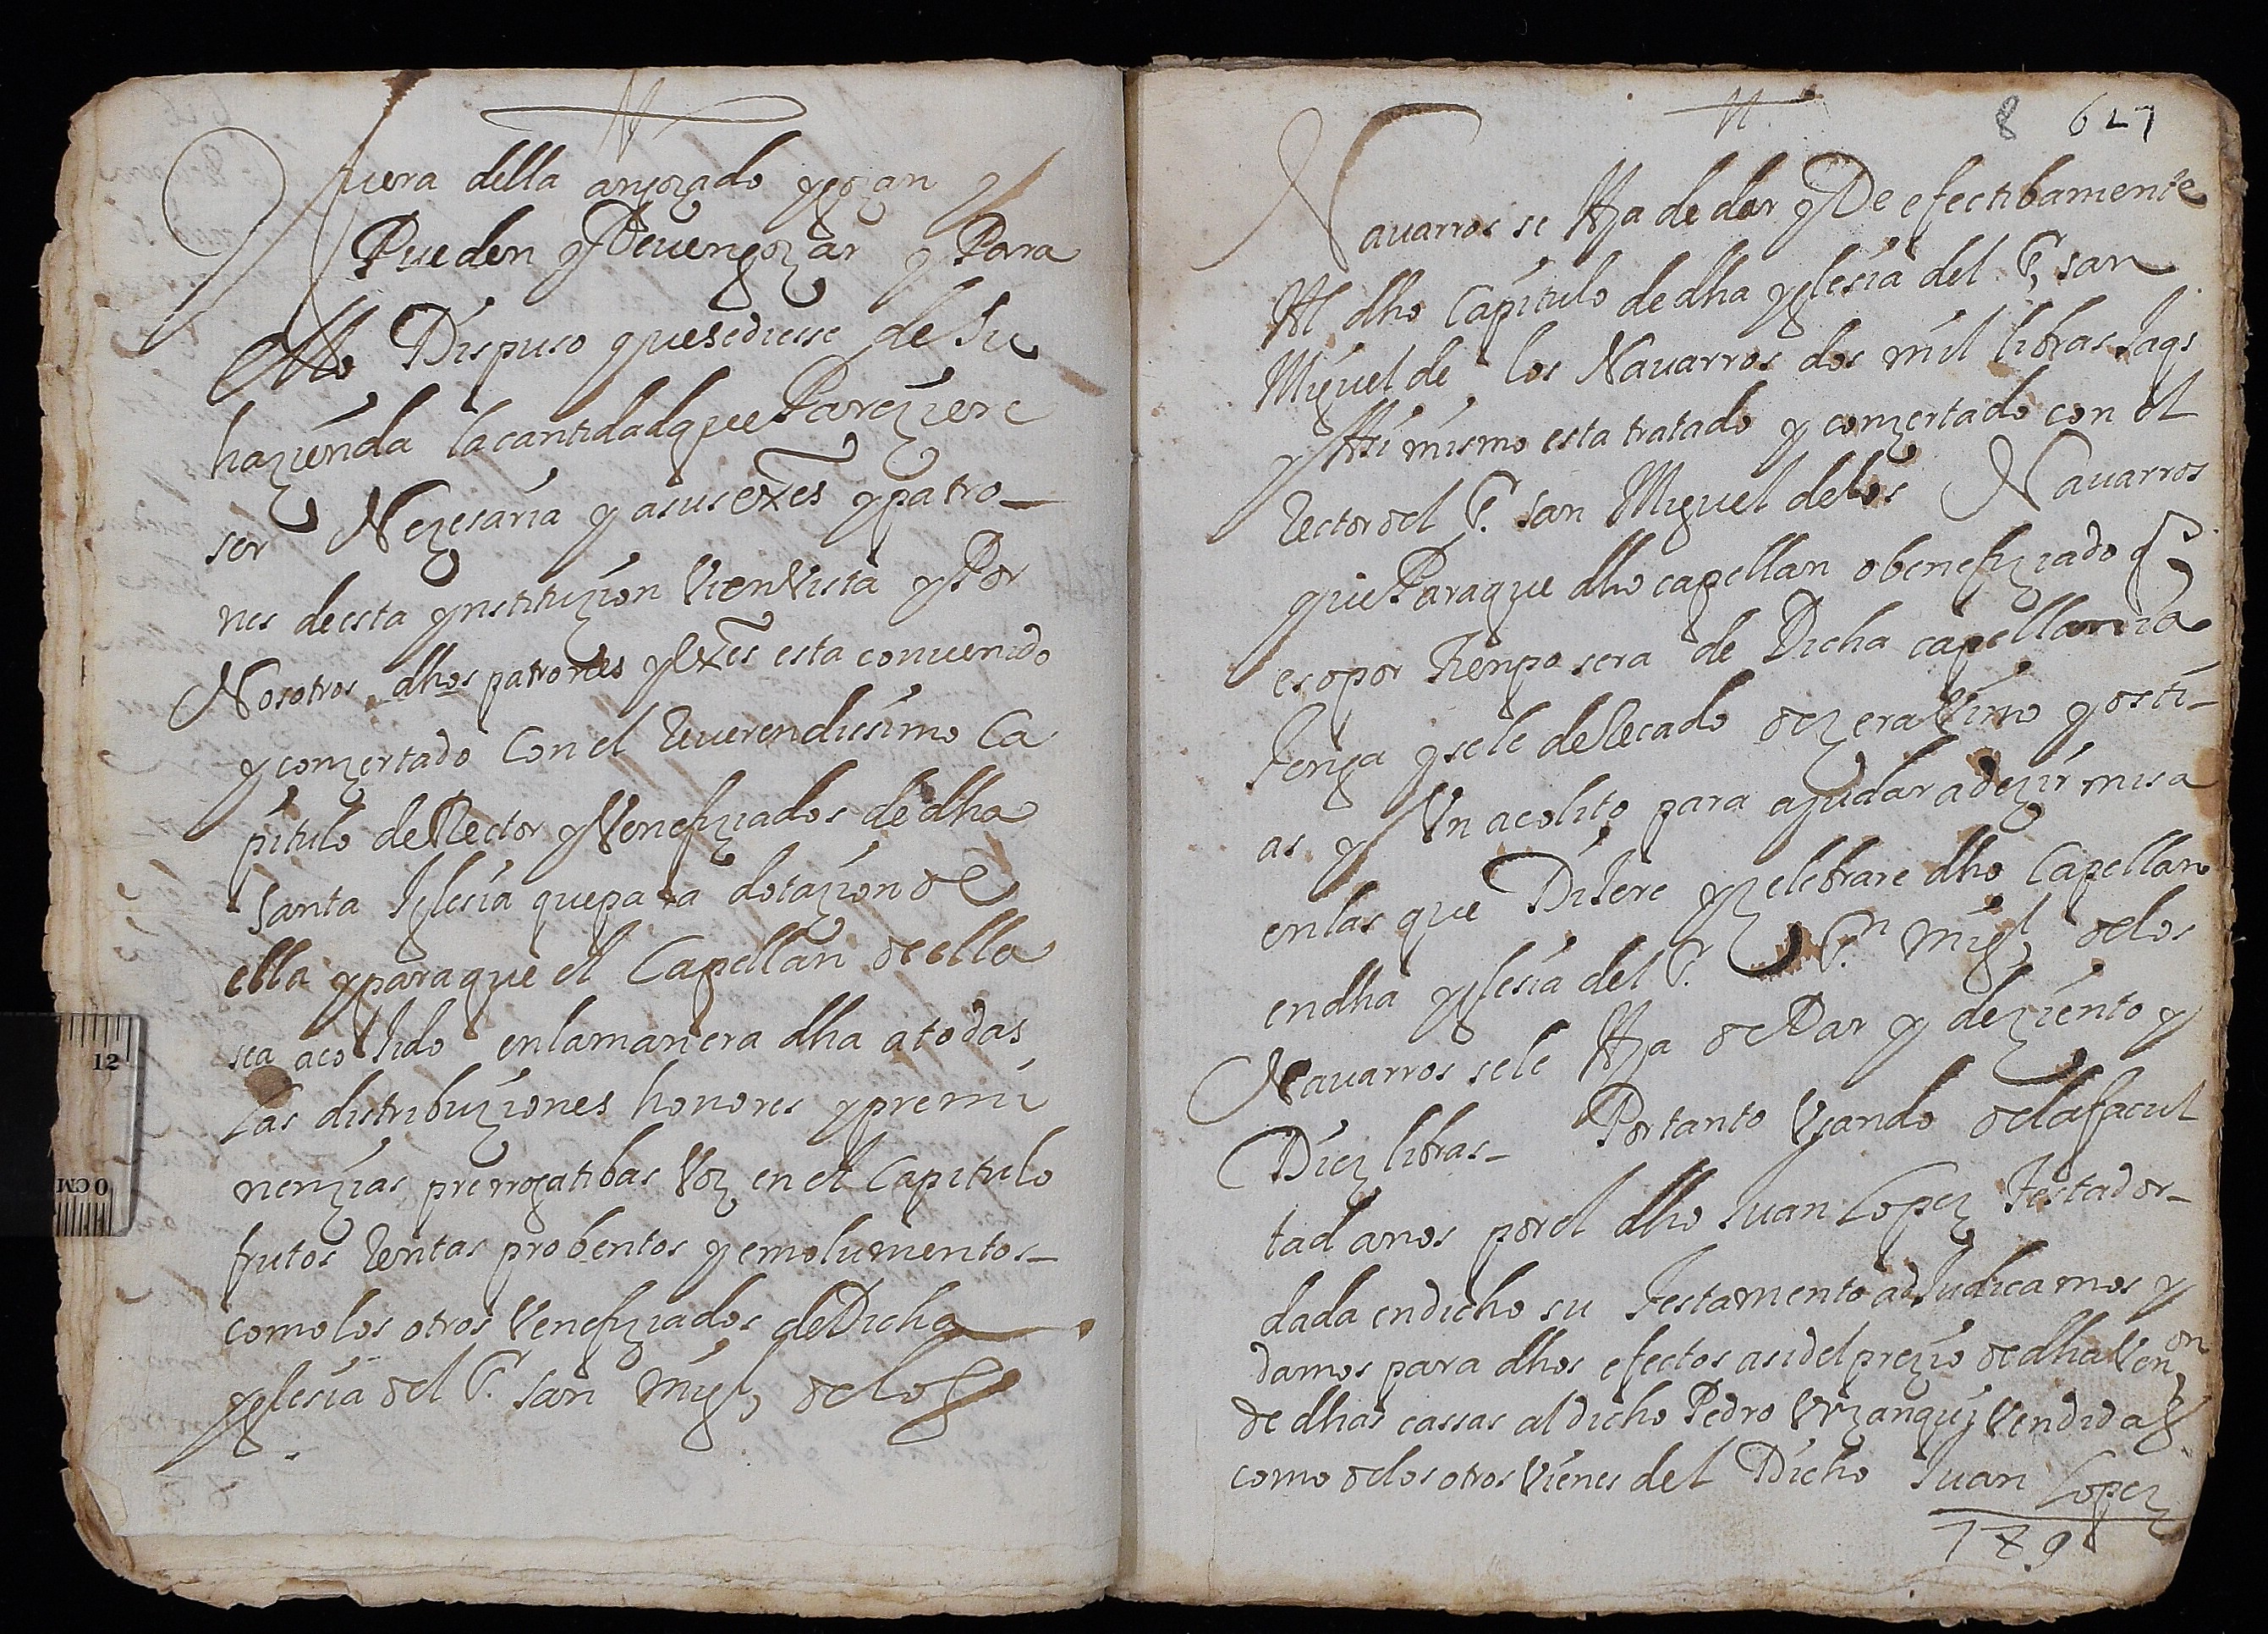 fuera della an gozado y gozan y
Pueden y Deuen gozar y Para
ello Dispuso que se diesse de su
hazienda la cantidad que Pareziere
ser Nezesaria y a sus exes y patro-
nes de esta ynstituzion Vien Vista y Por
Nosotros dhos patrones y exes esta conuenido
y conzertado Con el Reuerendissimo Ca
pitulo de Rector y Venefiziados de dha
santa Iglesia que para dotazion de
ella y para que el Capellan de ella
sea acojido en la manera dha a todas
Las distribuziones honores y premi
nenzias prerrogatibas Voz en el Capitulo
frutos Rentas probentos y emolumentos-
como los otros Venefiziados de Dicha
yglesia del S. san Migl de los
8 627
Nauarros se Ha de dar y De efectibamente
Al dho Capitulo de dha yglesia del S. san
Miguel de los Nauarros dos mil libras Jaqs
y Asi mismo esta tratado y conzertado con el
Rector del S. san Miguel de los Nauarros
que Para que dho capellan o benefiziado q
es o por Tienpo sera de Dicha capellania
Tenga y se le de Recado de zera Vino y osti-
as y Vn acolito para ayudar a dezir misa
en las que Dijere y zelebrare dho Capellan
en dha yglesia del S. Sn Migl de los
Nauarros se le Ha de Dar y de ziento y
Diez libras- Por tanto Vsando de la facul
tad a nos por el dho Juan Lopez Testador-
dada en dicho su Testamento adJudicamos y
damos para dhos efectos asi del prezio de dha Venon
de dhas cassas al dicho Pedro Vrzanqui Vendidas
como de los otros Vienes del Dicho Juan Lopez
179